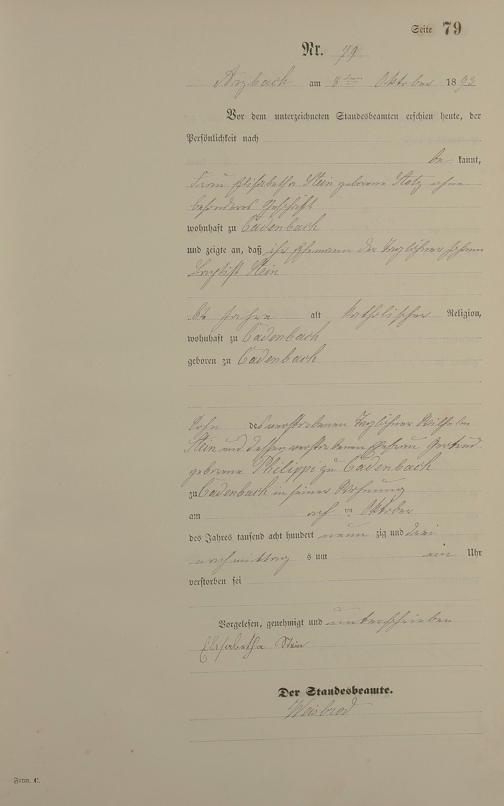 Seite 79
Nr. 79
Arzbach am 8ten Oktober 1893
Vor dem unterzeichneten Standesbeamten erschien heute, der
Persönlichkeit nach
be kannt,
Frau Elisabetha Stein geborene Stotz ohne
besonderes Geschäft
wohnhaft zu Cadenbach
und zeigte an, daß ihr Ehemann der Taglöhner Johann
Baptist Stein
Jahre alt katholischer Religion,
wohnhaft zu Cadenbach
geboren zu Cadenbach
Sohn des verstorbenen Taglöhner Wilhelm
Stein und dessen verstorbenen Ehefrau Gertrud
geborene Philippi zu Cadenbach
zu Cadenbach in seiner Wohnung
am Oktober
des Jahres tausend acht hundert neun zig und drei
nachmittag s um ein Uhr
verstorben sei
Vorgelesen, genehmigt und unterschrieben
Elisabetha Stein
Der Standesbeamte.
Weisbrod
Form. C.